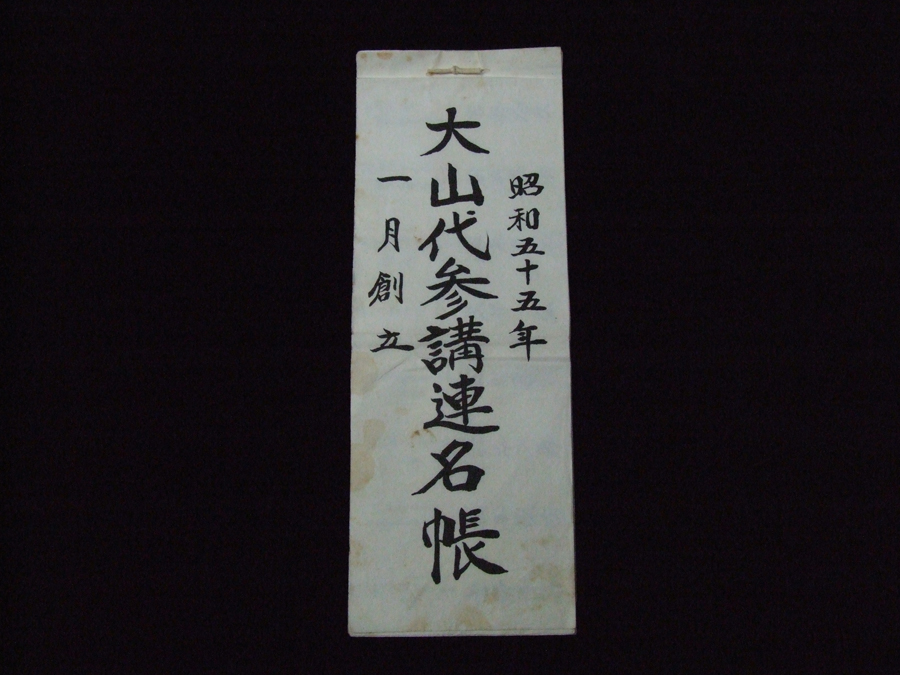 昭和五十五年
大山代参講連名帳
一月創立